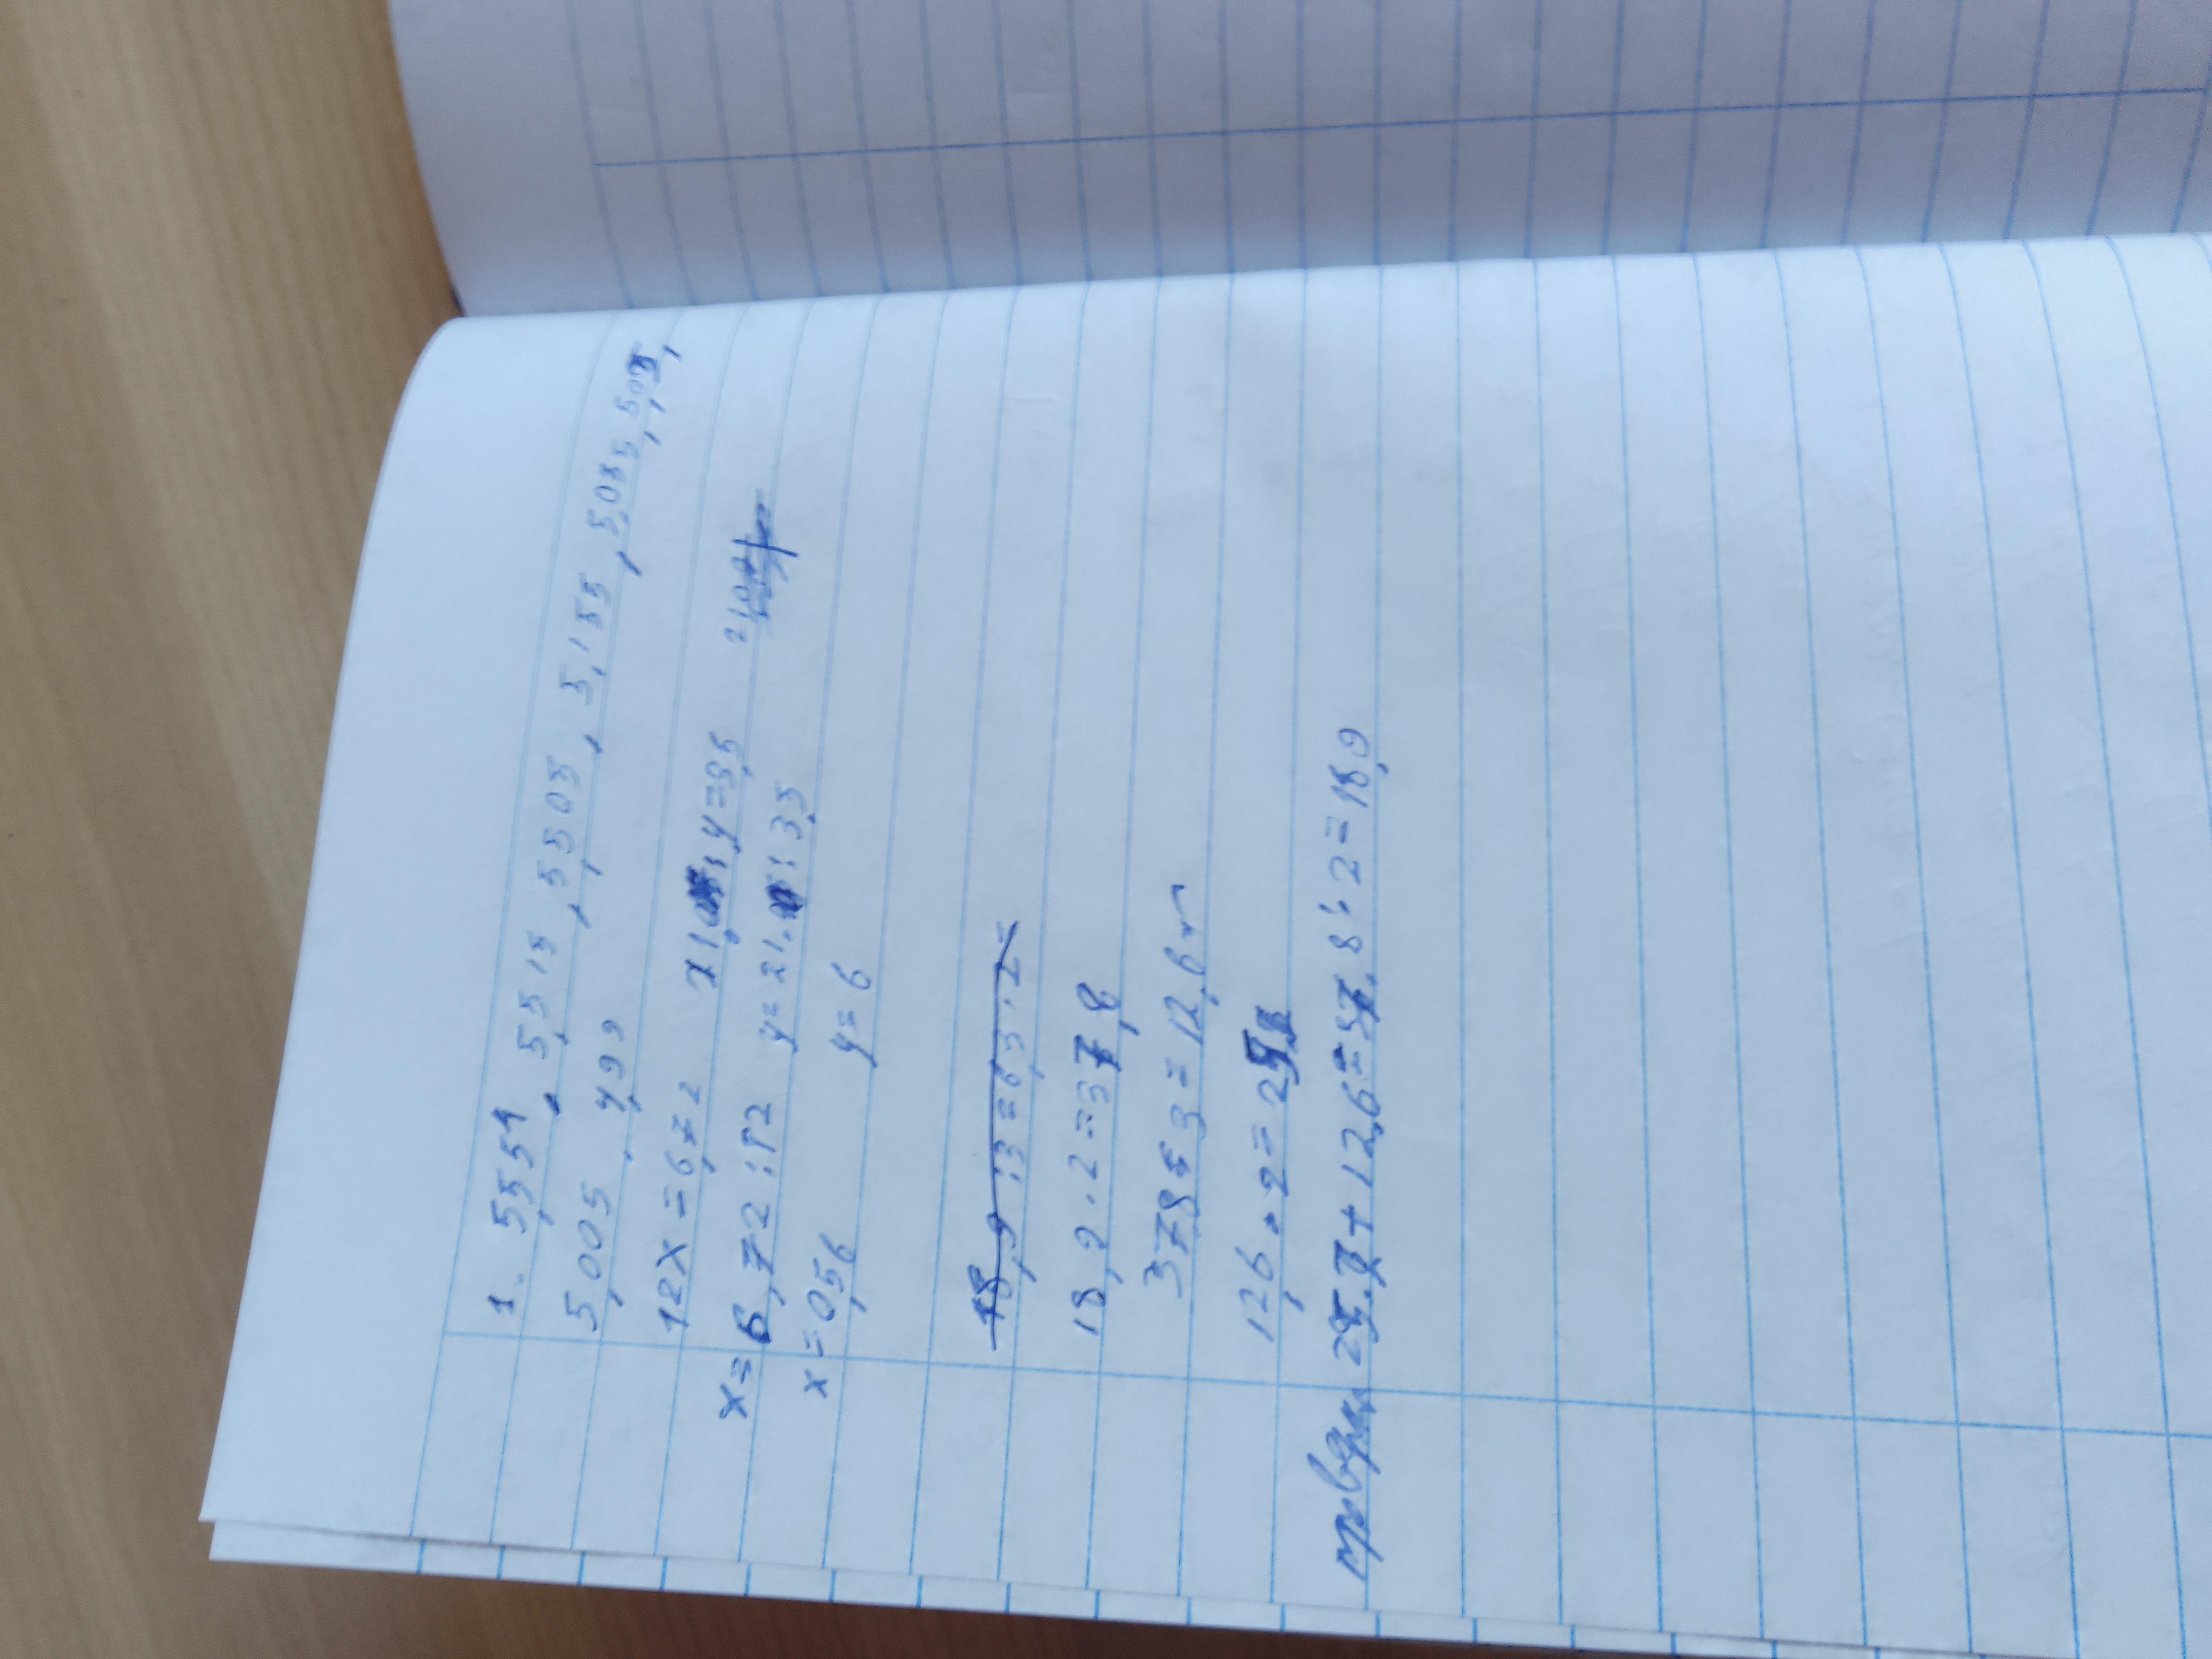 1. 5,554, 5,515, 5,503, 5,155, 5,035, 5,05,
5,005, 4,99
12x = 6,72 21 : y = 3,5
x = 6,72 : 12 y = 21 : 3,5
x = 0,56 y = 6
18,9 : 3 = 6,3 · 2 =
18,9 · 2 = 37,8
37,8 : 3 = 12,6
12,6 · 2 = 25,2
25,2 + 12,6 = 37,8 : 2 = 18,9